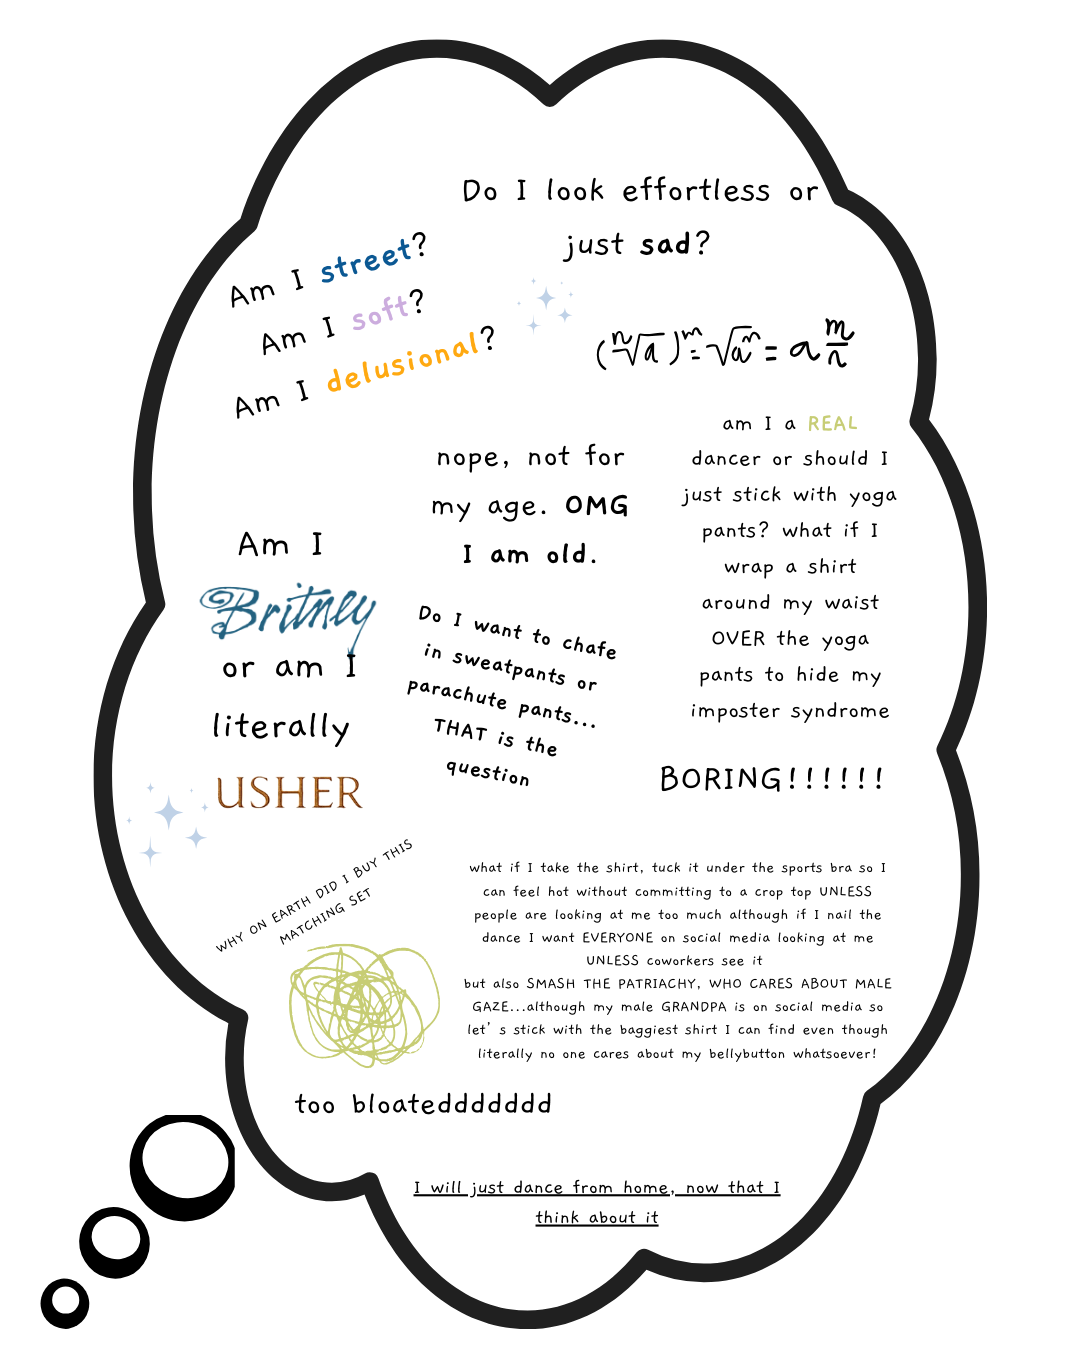 Do I look effortless or
just sad?
Am I street?
Am I soft?
Am I delusional?
(ⁿ√a)ᵐ = √aᵐ = a m/n
am I a REAL
dancer or should I
just stick with yoga
pants? what if I
wrap a shirt
around my waist
OVER the yoga
pants to hide my
imposter syndrome
nope, not for
my age. OMG
I am old.
Am I
Britney
or am I
literally
USHER
Do I want to chafe
in sweatpants or
parachute pants...
THAT is the
question
BORING!!!!!!
WHY ON EARTH DID I BUY THIS
MATCHING SET
what if I take the shirt, tuck it under the sports bra so I
can feel hot without committing to a crop top UNLESS
people are looking at me too much although if I nail the
dance I want EVERYONE on social media looking at me
UNLESS coworkers see it
but also SMASH THE PATRIACHY, WHO CARES ABOUT MALE
GAZE...although my male GRANDPA is on social media so
let's stick with the baggiest shirt I can find even though
literally no one cares about my bellybutton whatsoever!
too bloateddddddd
I will just dance from home, now that I
think about it